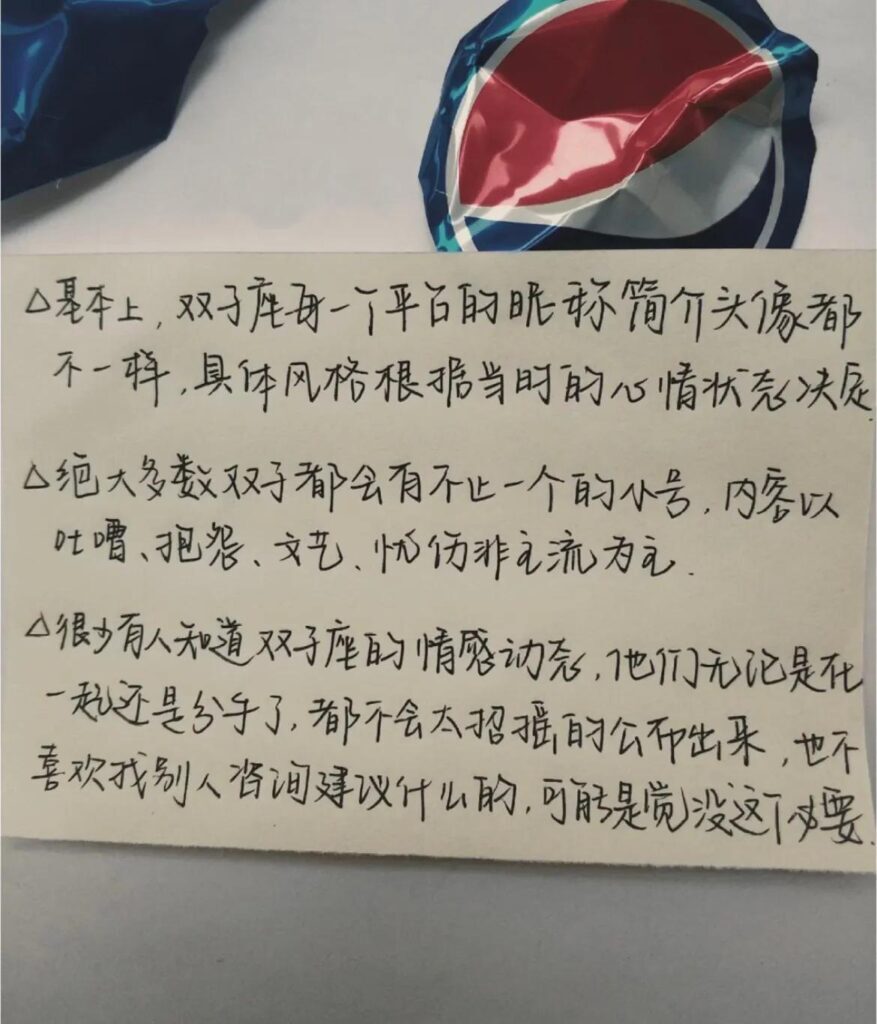 △基本上,双子座每一个平台的昵称简介头像都
不一样,具体风格根据当时的心情状态决定
△绝大多数双子都会有不止一个的小号,内容以
吐嘈、抱怨、文艺、忧伤非主流为主.
△很少有人知道双子座的情感动态,他们无论是在
一起还是分手了,都不会太招摇的公布出来,也不
喜欢找别人咨询建议什么的,可能是觉没这个必要.